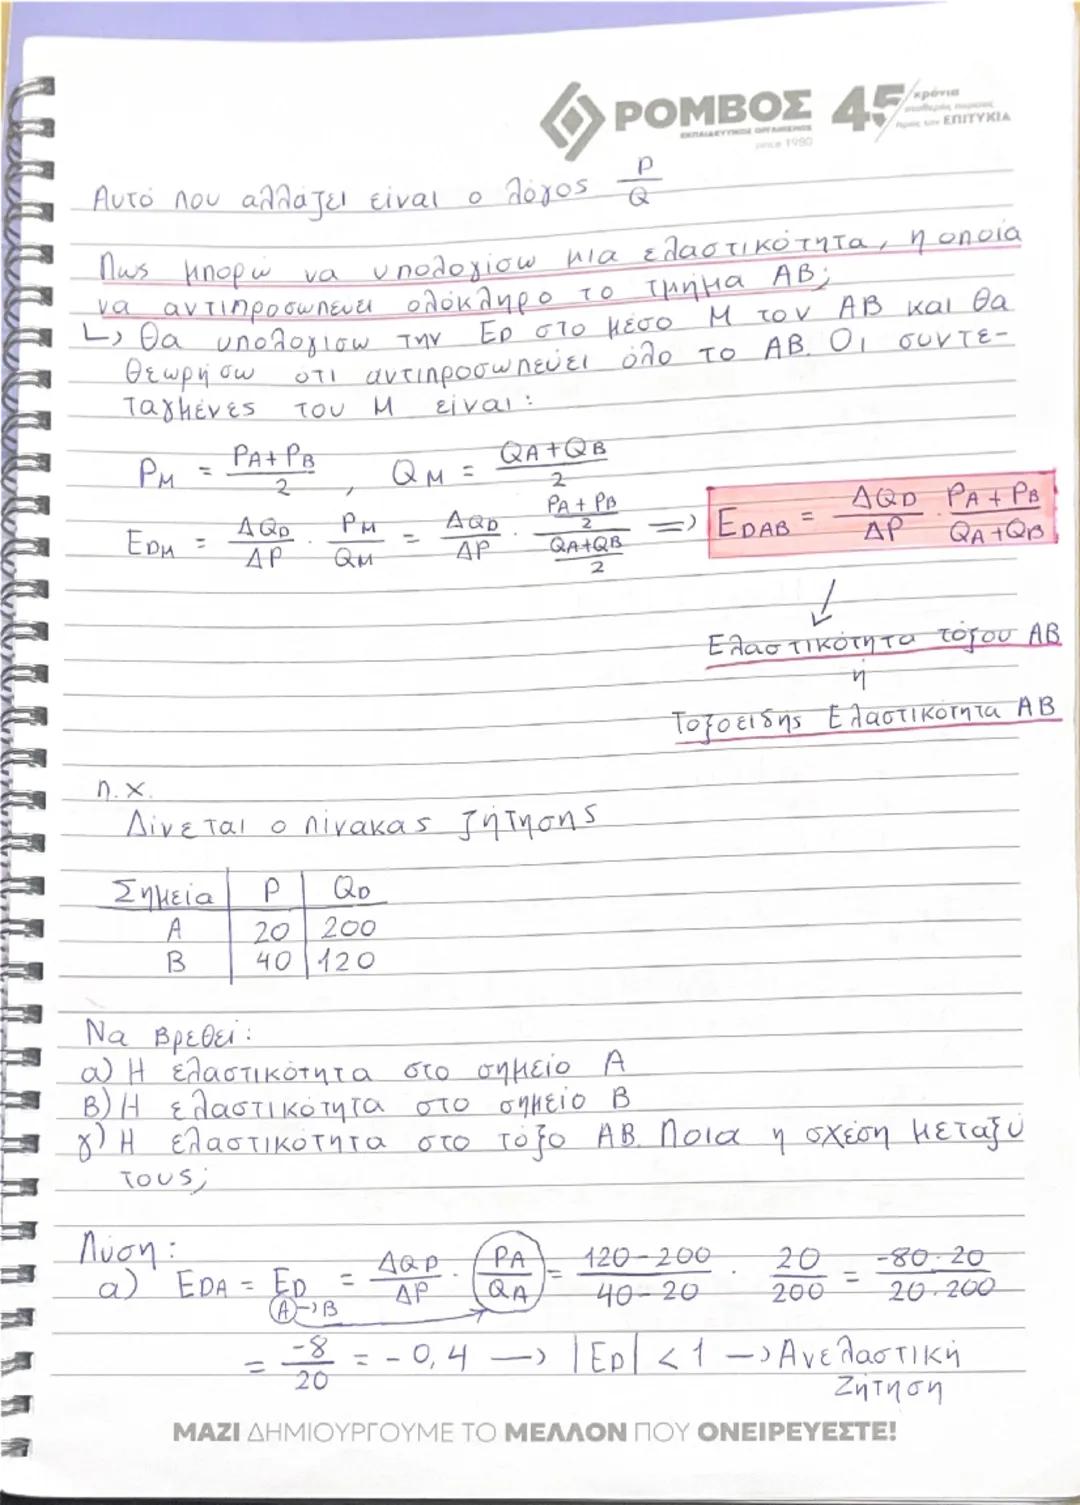 ΡΟΜΒΟΣ 45 χρόνια
ΕΚΠΑΙΔΕΥΤΙΚΟΣ ΟΡΓΑΝΙΣΜΟΣ
since 1980
προς την ΕΠΙΤΥΧΙΑ
Αυτό που αλλάζει είναι ο λόγος P/Q
Πως μπορώ να υπολογίσω μια ελαστικότητα, η οποία
να αντιπροσωπευει ολόκληρο το τμήμα AB;
↳ Θα υπολογισω την ED στο μέσο M του AB και θα
θεωρήσω οτι αντιπροσωπεύει όλο το AB. Οι συντε-
ταγμένες του M είναι:
PM = (PA + PB)/2 , QM = (QA + QB)/2
EDM = ΔQD/ΔP · PM/QM = ΔQD/ΔP · ((PA + PB)/2)/((QA + QB)/2) => EDAB = ΔQD/ΔP · (PA + PB)/(QA + QB)
↓
Ελαστικότητα τόξου AB
ή
Τοξοειδης Ελαστικοτητα AB
π.χ.
Δίνεται ο πίνακας ζήτησης
Σημεία P QD
A 20 200
B 40 120
Να βρεθεί:
α) Η ελαστικότητα στο σημείο A
β) Η ελαστικότητα στο σημείο B
γ) Η ελαστικότητα στο τόξο AB. Ποια η σχέση μεταξύ
τους;
Λυση:
α) EDA = ED A->B = ΔQD/ΔP · PA/QA = (120 - 200)/(40 - 20) · 20/200 = (-80 · 20)/(20 · 200)
= -8/20 = -0,4 —> |ED| < 1 —> Ανελαστική
Ζήτηση
ΜΑΖΙ ΔΗΜΙΟΥΡΓΟΥΜΕ ΤΟ ΜΕΛΛΟΝ ΠΟΥ ΟΝΕΙΡΕΥΕΣΤΕ!